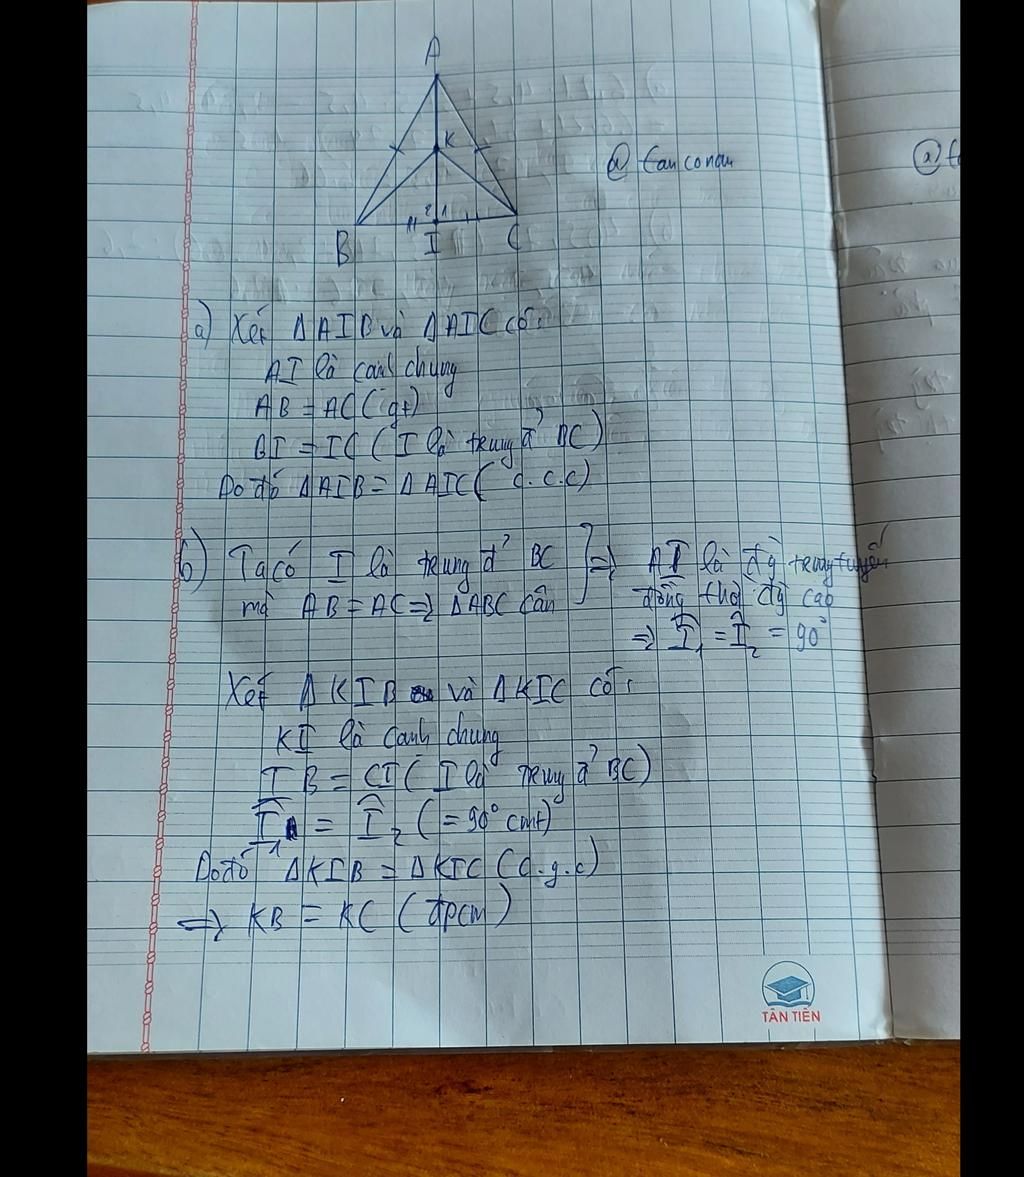 A
K
2 1
B I C
@ fan conan
@ f
a) Xét ΔAIB và ΔAIC có:
AI là cạnh chung
AB = AC (gt)
BI = IC ( I là trung đ² BC)
Do đó ΔAIB = ΔAIC ( c.c.c)
b) Ta có I là trung đ² BC
mà AB = AC => ΔABC cân } => AI là đg̀ trung tuyến
đồng thời đg̀ cao
=> Î₁ = Î₂ = 90°
Xét ΔKIB và ΔKIC có:
KI là cạnh chung
IB = CI ( I là trung đ² BC)
Î₁ = Î₂ (= 90° cmt)
Do đó ΔKIB = ΔKIC (c.g.c)
=> KB = KC (đpcm)
TÂN TIẾN